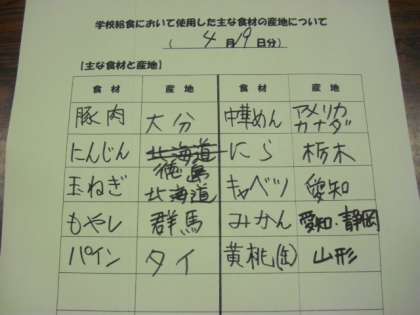 学校給食において使用した主な食材の産地について
( 4月19日分)
【主な食材と産地】
食材 産地 食材 産地
豚肉 大分 中華めん アメリカ カナダ
にんじん 北海道 徳島 にら 栃木
玉ねぎ 北海道 キャベツ 愛知
もやし 群馬 みかん 愛知・静岡
パイン タイ 黄桃(缶) 山形